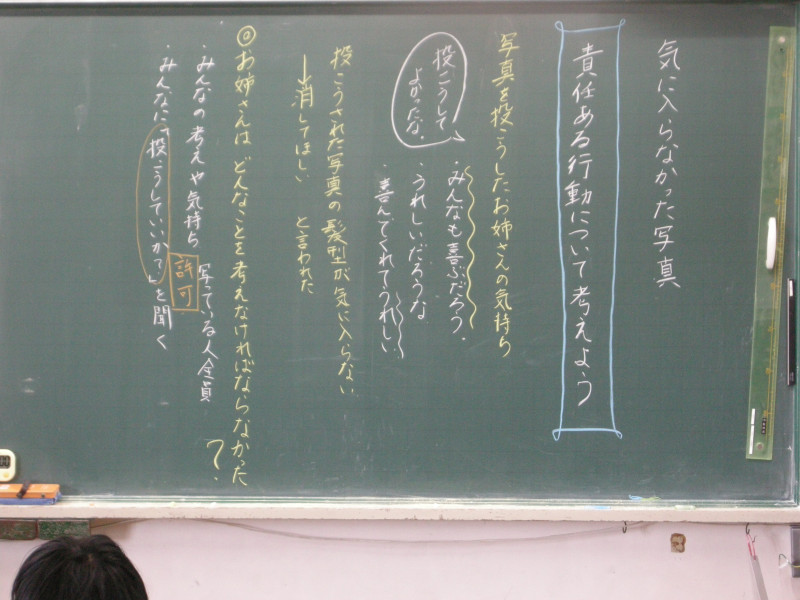 気に入らなかった写真
責任ある行動について考えよう
写真を投こうしたお姉さんの気持ち
投こうして
よかったな。
・みんなも喜ぶだろう。
・うれしいだろうな
・喜んでくれてうれしい
投こうされた写真の髪型が気に入らない
→消してほしい と言われた
◎お姉さんは どんなことを考えなければならなかった?
・みんなの考えや気持ち 写っている人全員
・みんなに「投こうしていいか?」を聞く
許可